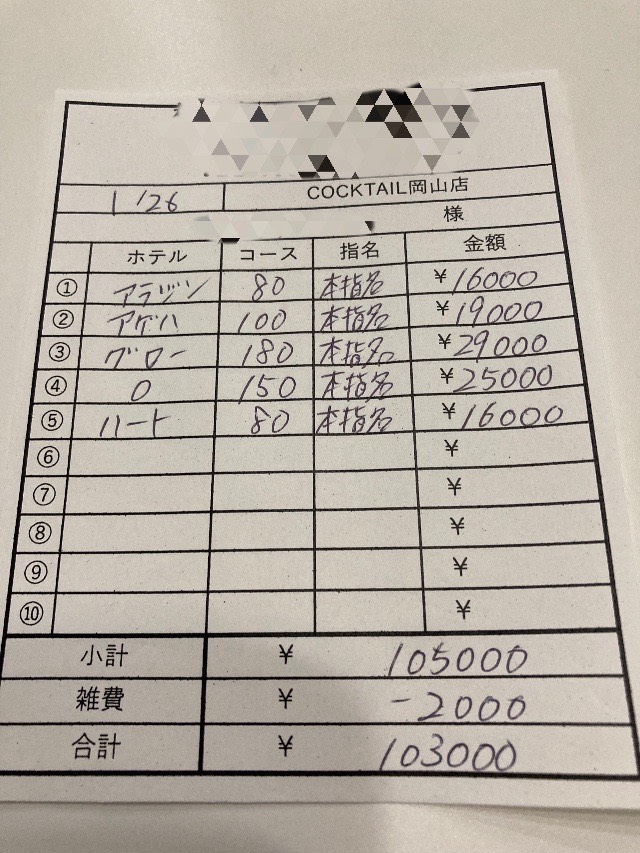 1/26 COCKTAIL岡山店
様
ホテル コース 指名 金額
① アラジン 80 本指名 ¥16000
② アゲハ 100 本指名 ¥19000
③ グロー 180 本指名 ¥29000
④ O 150 本指名 ¥25000
⑤ ハート 80 本指名 ¥16000
⑥ ¥
⑦ ¥
⑧ ¥
⑨ ¥
⑩ ¥
小計 ¥ 105000
雑費 ¥ -2000
合計 ¥ 103000